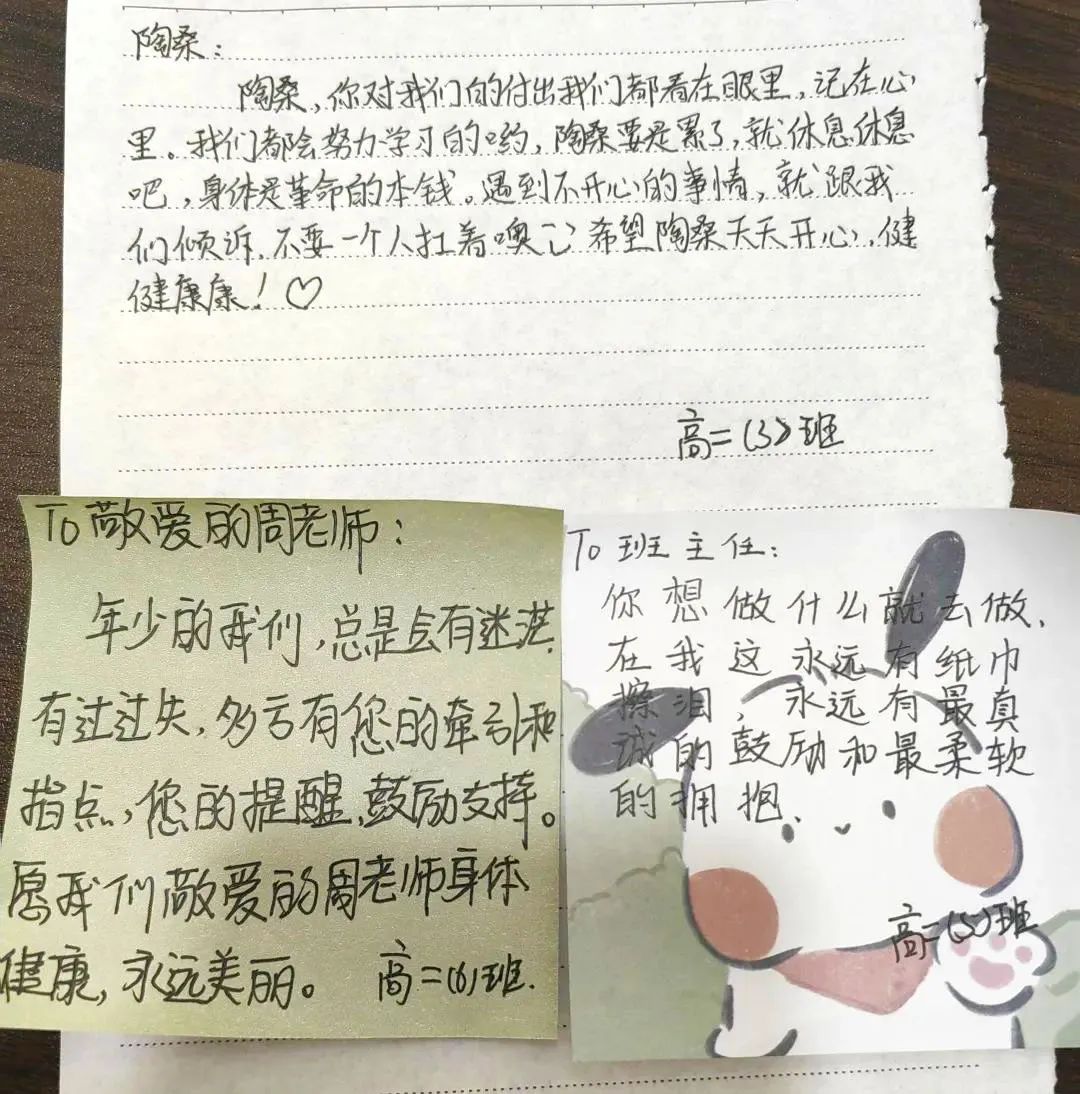 陶桑：
陶桑，你对我们的付出我们都看在眼里，记在心
里。我们都会努力学习的哟，陶桑要是累了，就休息休息
吧，身体是革命的本钱。遇到不开心的事情，就跟我
们倾诉，不要一个人扛着噢 希望陶桑天天开心，健
健康康！♡
高二（3）班
To 敬爱的周老师：
年少的我们，总是会有迷茫，
有过过失，多亏有您的牵引和
指点，您的提醒、鼓励支持。
愿我们敬爱的周老师身体
健康，永远美丽。 高二（6）班.
To 班主任：
你想做什么就去做，
在我这永远有纸巾
擦泪，永远有最真
诚的鼓励和最柔软
的拥抱、
高二（5）班